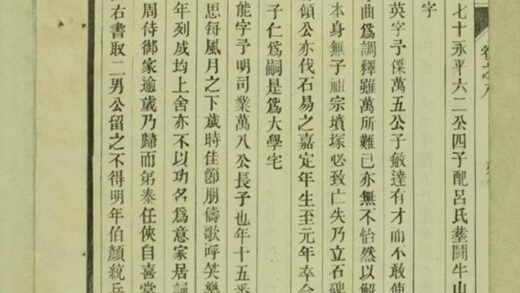 七十永平六二公四子配呂氏塟鬪牛山
字
英字予傑萬五公子敏達有才而不敢使
曲爲調釋雖萬所難已亦無不怡然以解
本身無子祖宗墳塚必致亡失乃立石碑
傾公亦伐石易之嘉定年生至元年卒合
子仁爲嗣是爲大學宅
能字予明司業萬八公長子也年十五番
思每風月之下歲時佳節朋儔歌呼笑樂
年列成均上舍亦不以功名爲意家居
周待御家逾歲乃歸而弟秦任俠自喜嘗
右書取二男公留之不得明年伯顏統兵